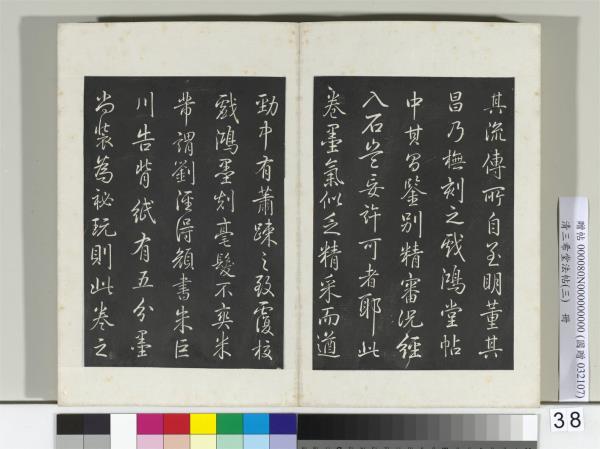 其流傳所自至明董其
昌乃橅刻之戲鴻堂帖
中其昌鑒別精審況經
入石豈妄許可者耶此
卷墨氣似乏精采而遒
勁中有蕭疎之致覆校
戲鴻墨刻毫髮不爽米
芾謂劉涇得顏書朱巨
川告背紙有五分墨
尚裝為秘玩則此卷之
贈帖 000080N000000000 (國贈 032107)
清三希堂法帖(三) 冊
38